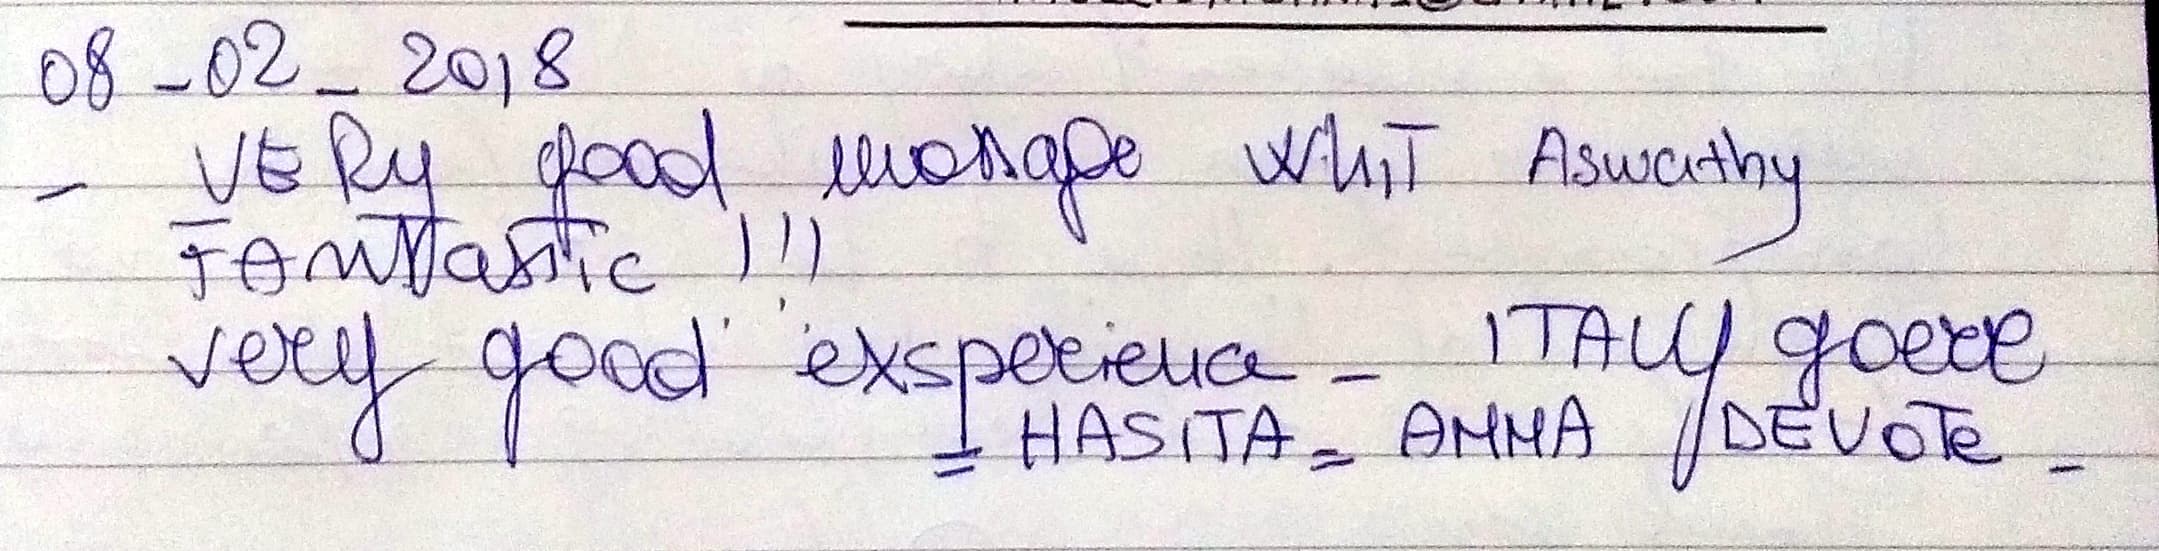 08-02-2018
- VERY good massage WhiT Aswathy
FANTastic !!!
very good exsperience - ITALY
= HASITA = AMMA DEVOTE -